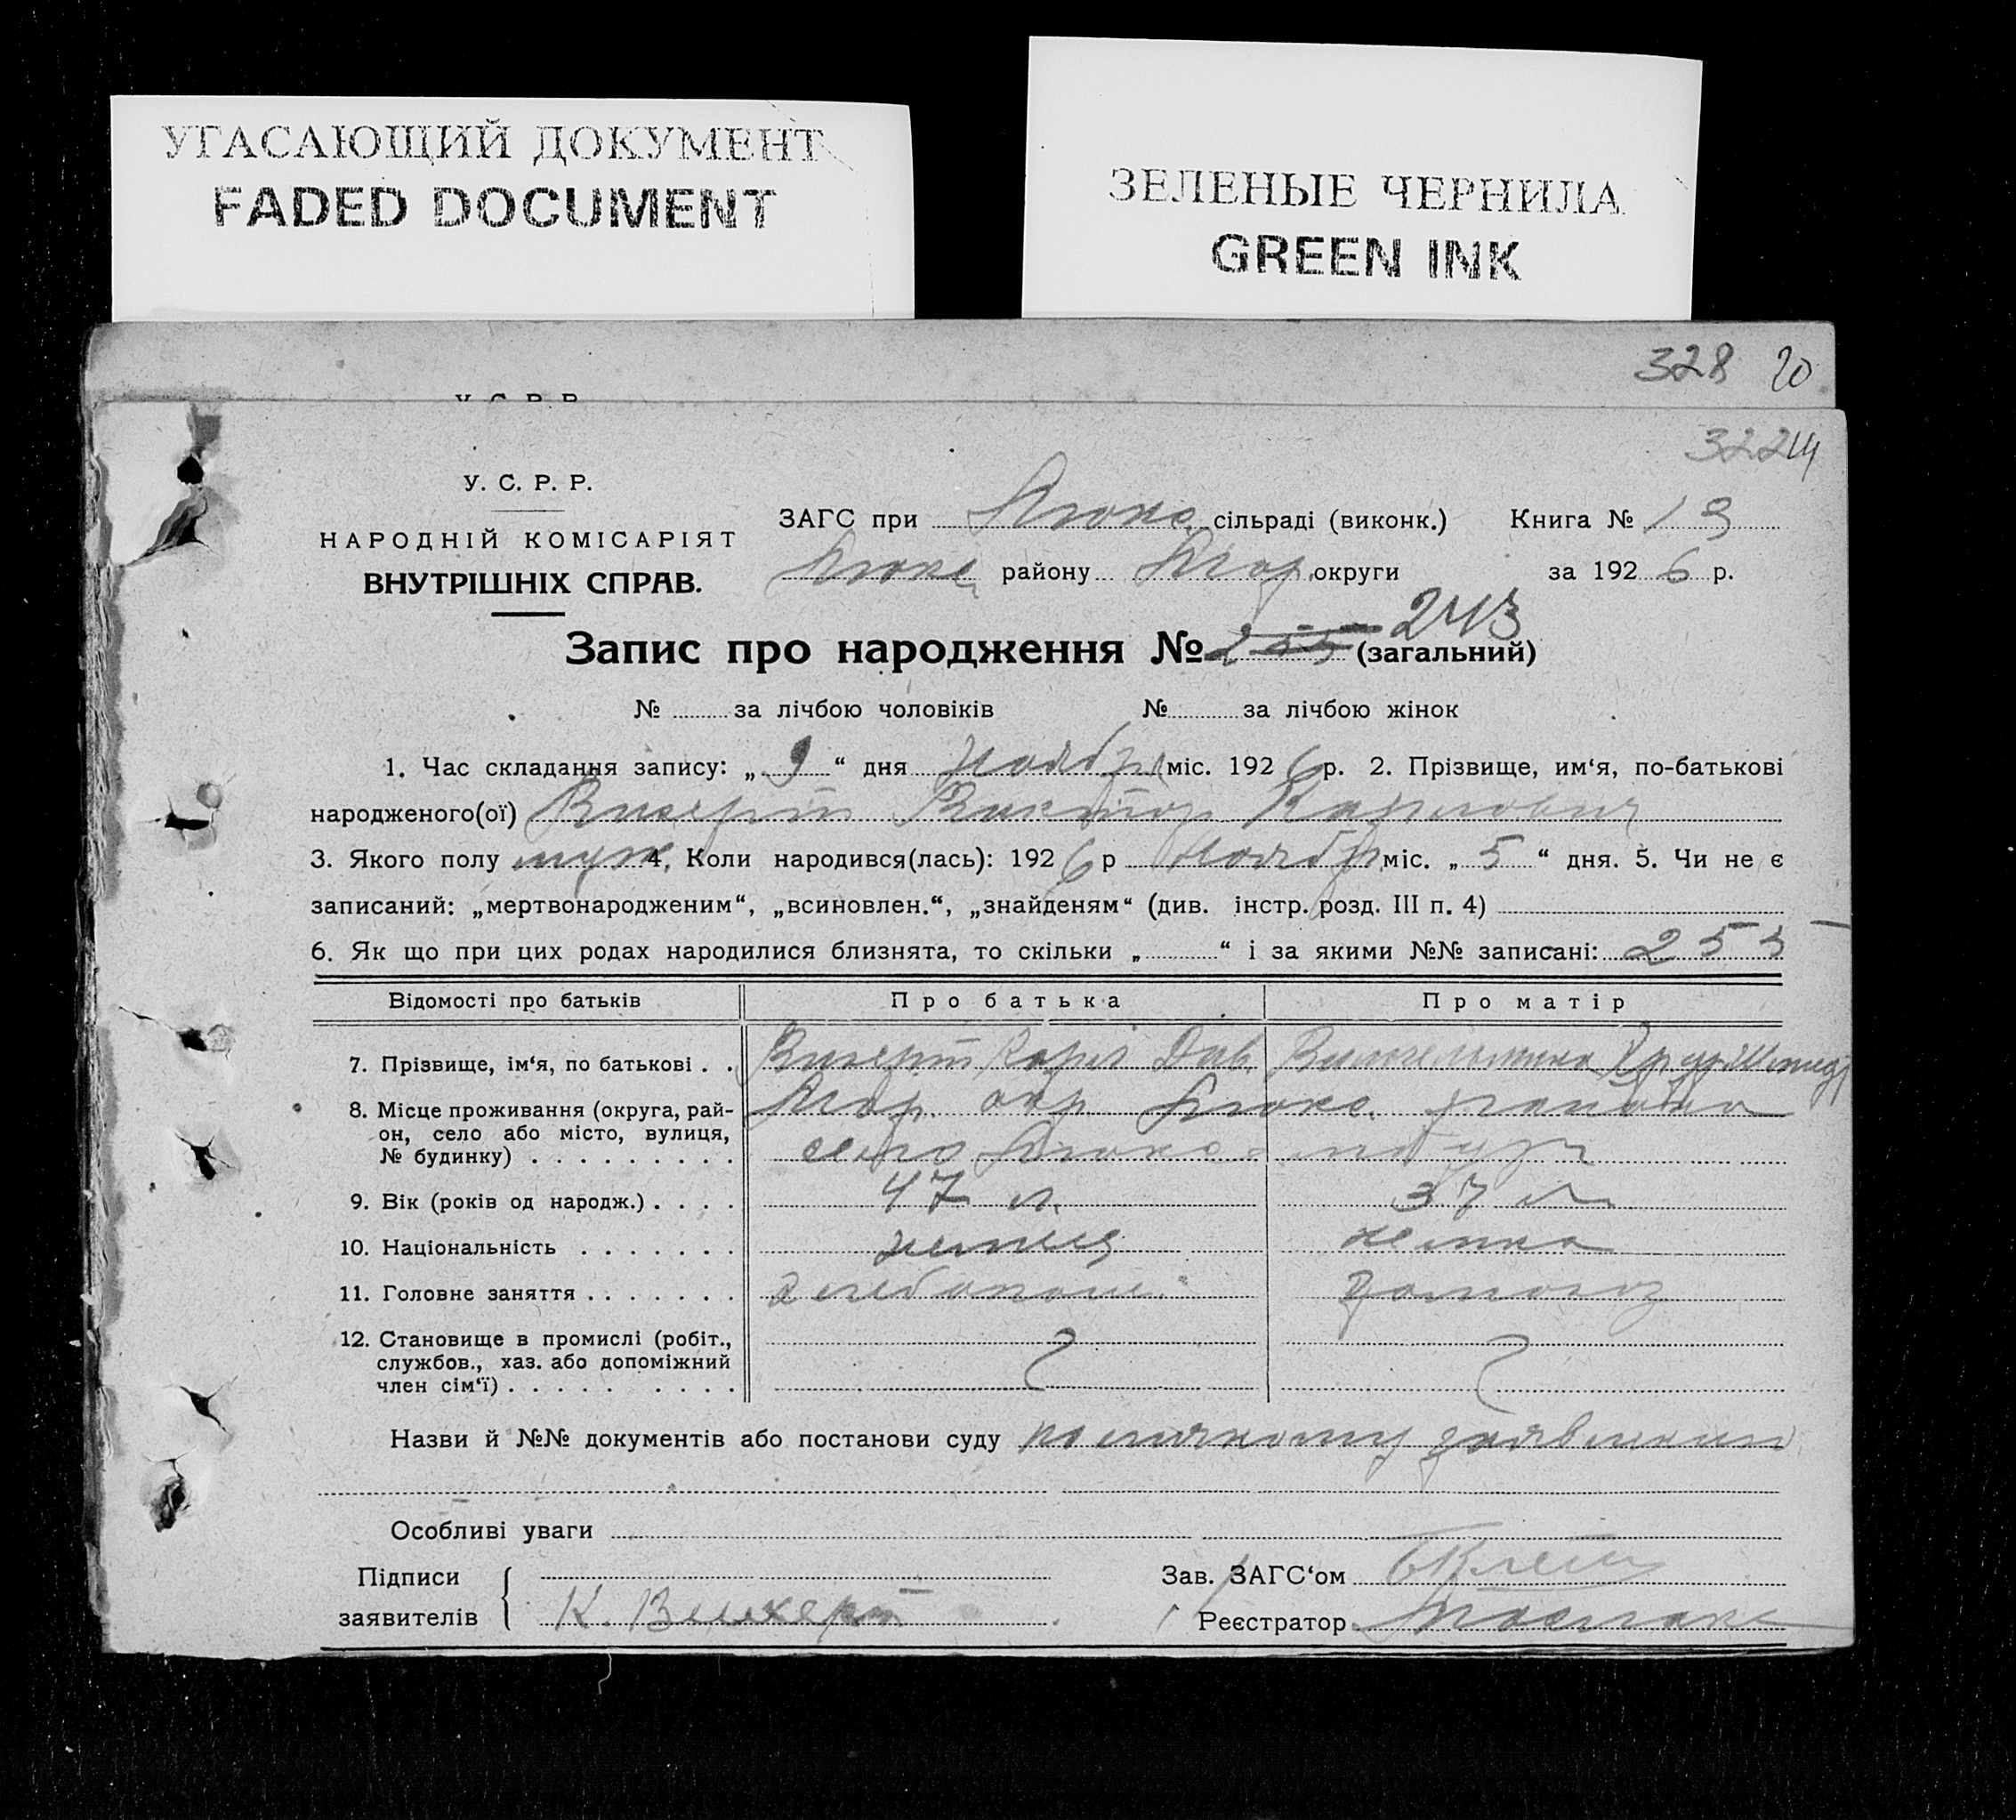 УГАСАЮЩИЙ ДОКУМЕНТ
FADED DOCUMENT
ЗЕЛЕНЫЕ ЧЕРНИЛА
GREEN INK
328 20
У. С. Р. Р.
322
У. С. Р. Р.
НАРОДНІЙ КОМІСАРІЯТ
ВНУТРІШНІХ СПРАВ.
ЗАГС при Люкс. сільраді (виконк.) Книга № 19
Люкс району округи за 1926 р.
Запис про народження № 255 243 (загальний)
№ за лічбою чоловіків № за лічбою жінок
1. Час складання запису: „ 9 “ дня Ноября міс. 1926 р. 2. Прізвище, им‘я, по-батькові
народженого(ої) Виктор Карлович
3. Якого полу муж 4. Коли народився(лась): 1926 р Ноябр міс. „ 5 “ дня. 5. Чи не є
записаний: „мертвонародженим“, „всиновлен.“, „знайденям“ (див. інстр. розд. III п. 4)
6. Як що при цих родах народилися близнята, то скільки „ “ і за якими №№ записані: 255
Відомості про батьків Про батька Про матір
7. Прізвище, ім‘я, по батькові . . Карл Дав. Вильгельмина
8. Місце проживання (округа, рай-
он, село або місто, вулиця,
№ будинку) окр Люкс. района
село Люксембург
9. Вік (років од народж.) 47 л. 37 л
10. Національність немец немка
11. Головне заняття хлебопаш. домохоз
12. Становище в промислі (робіт.,
службов., хаз. або допоміжний
член сім‘ї)
Назви й №№ документів або постанови суду заявлению
Особливі уваги
Підписи
заявителів К. Вихерт
Зав. ЗАГС‘ом
Реєстратор